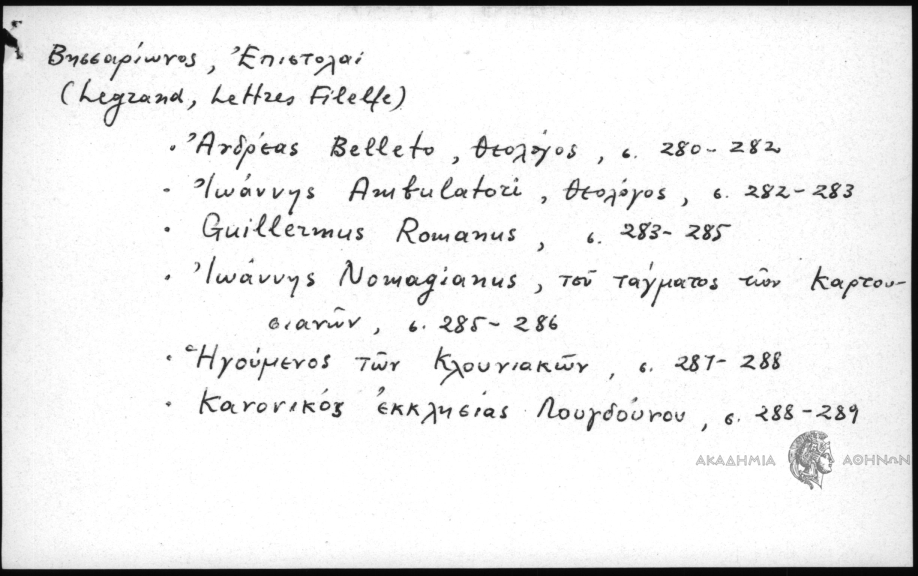 Βησσαρίωνος, Ἐπιστολαί
(Legrand, Lettres Filelfe)
· Ἀνδρέας Belleto, θεολόγος, σ. 280-282
· Ἰωάννης Ambulatori, θεολόγος, σ. 282-283
· Guillermus Romanus, σ. 283-285
· Ἰωάννης Nomagianus, τοῦ τάγματος τῶν Καρτου-
σιανῶν, σ. 285-286
· Ἡγούμενος τῶν Κλουνιακῶν, σ. 287-288
· Κανονικός ἐκκλησίας Λουγδούνου, σ. 288-289
ΑΚΑΔΗΜΙΑ ΑΘΗΝΩΝ